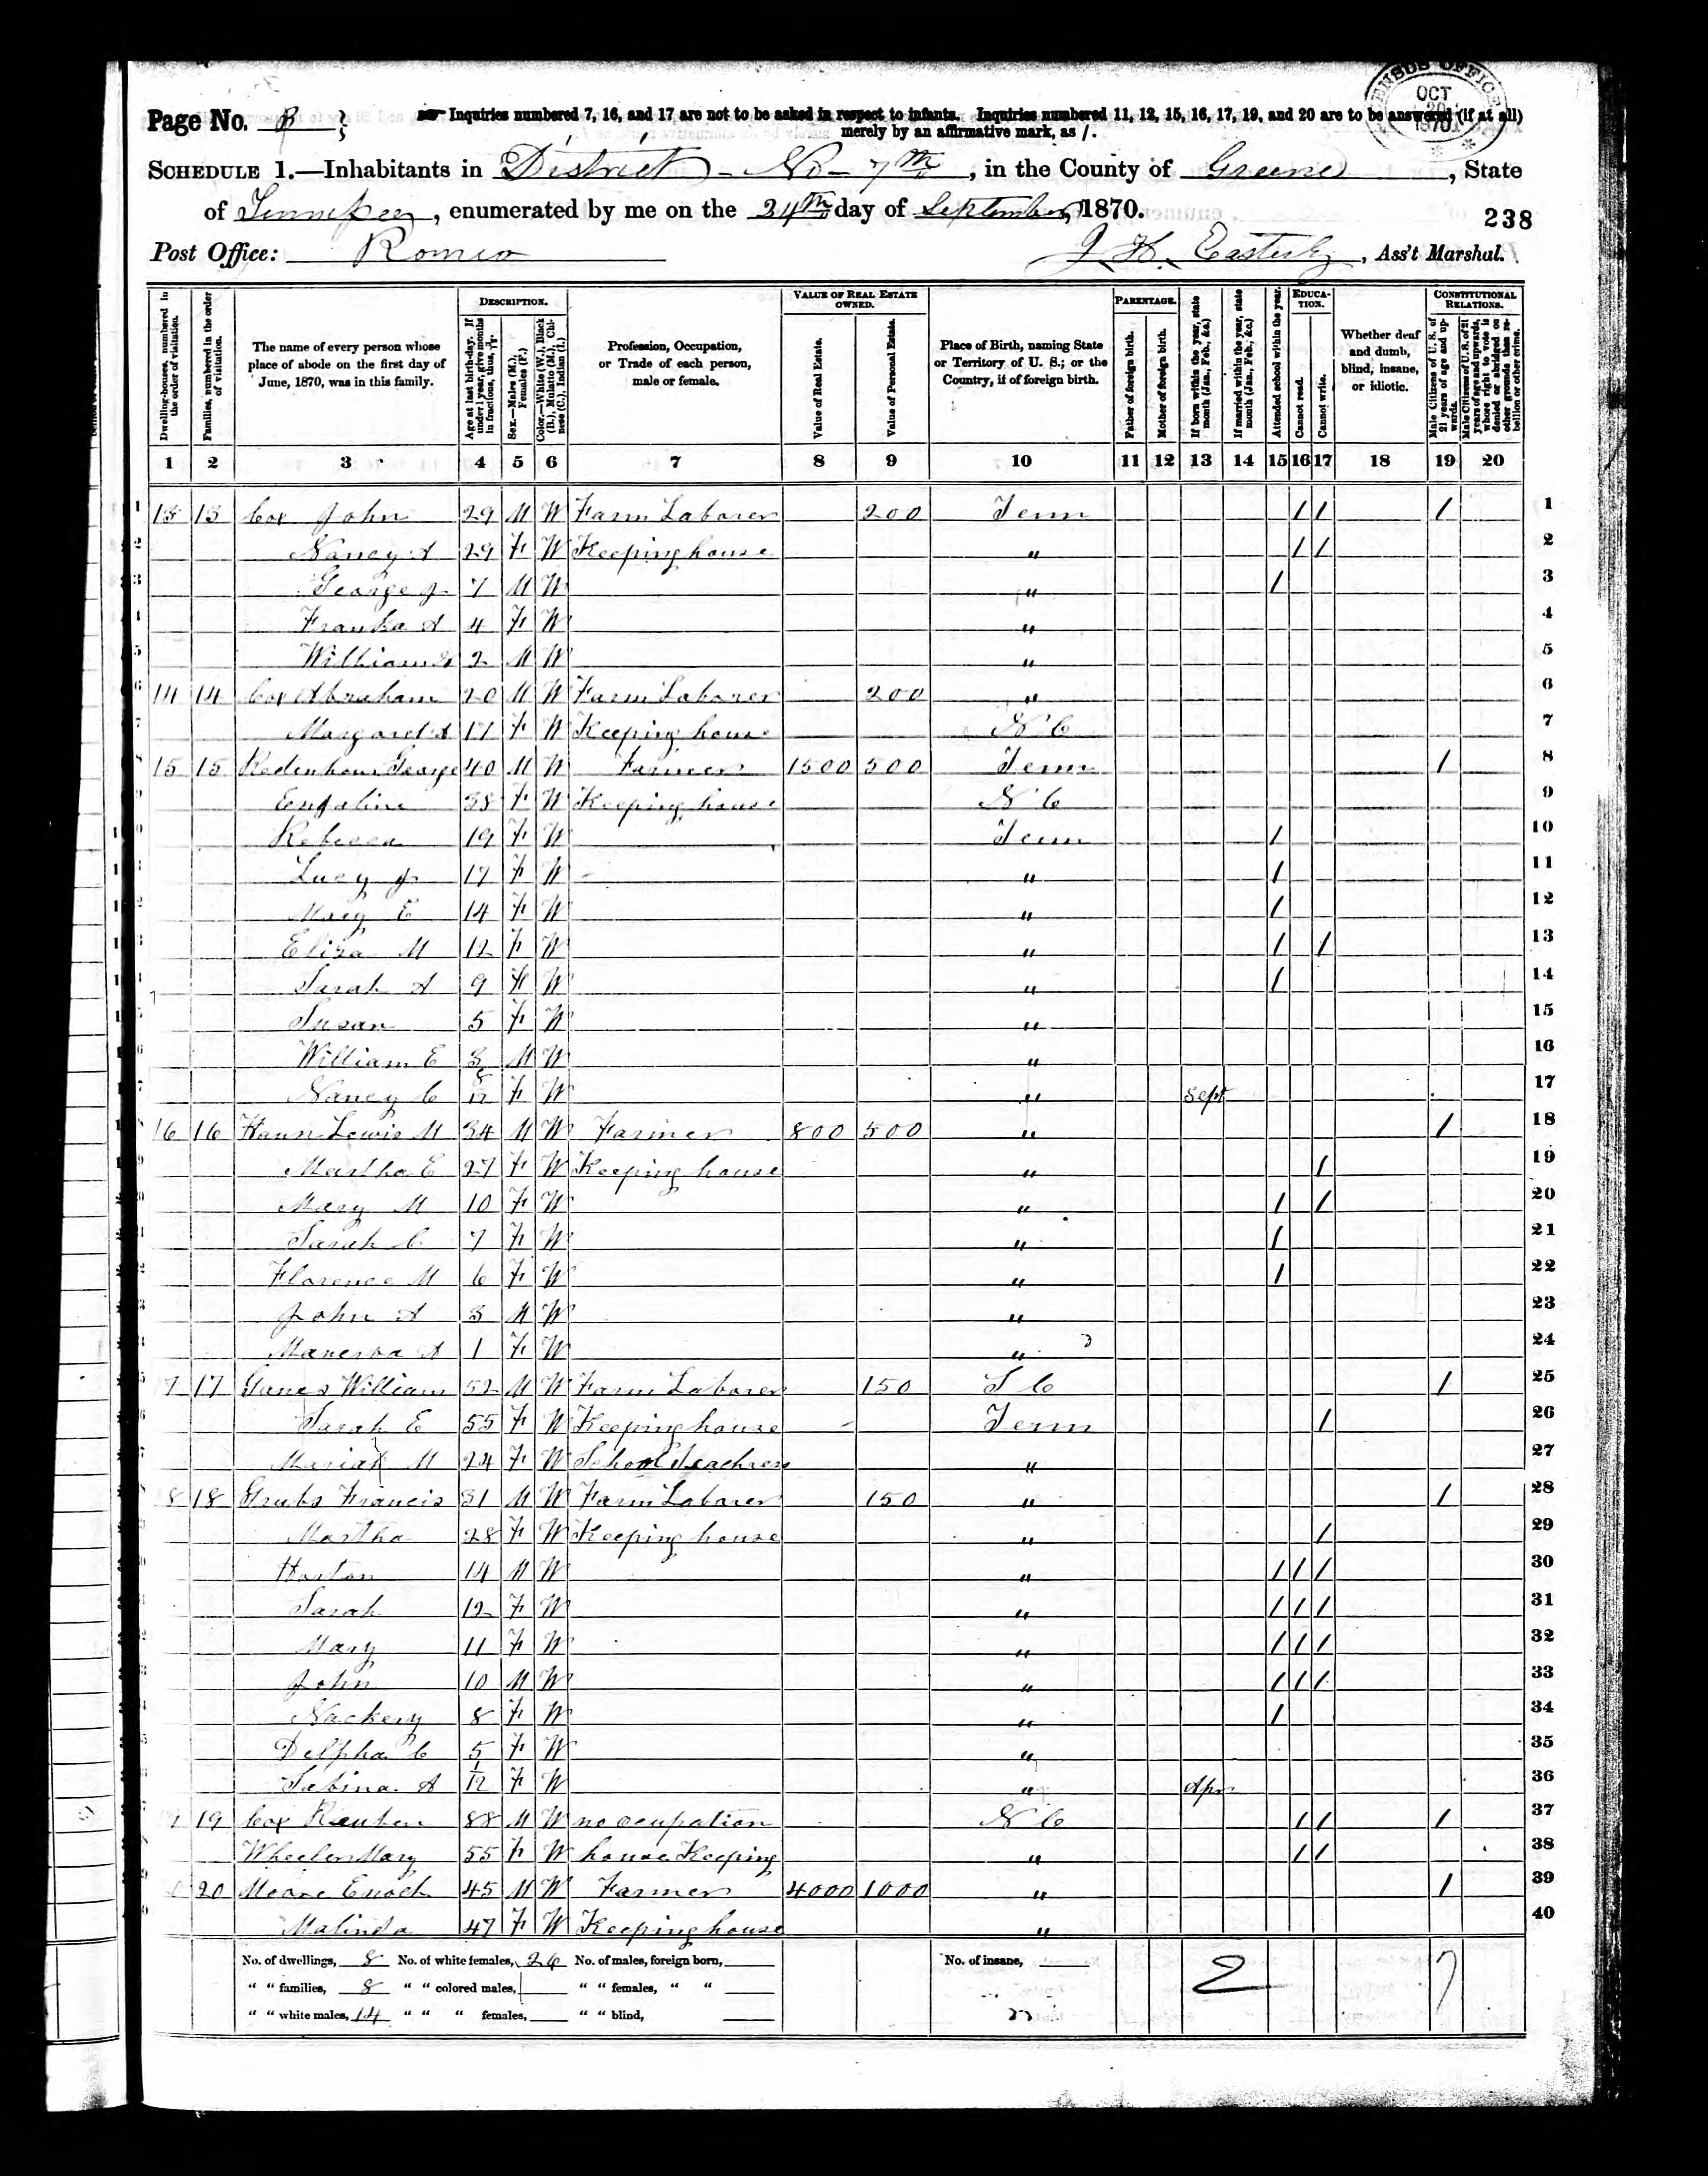 CENSUS OFFICE OCT 20 1870
Page No. 3 } Inquiries numbered 7, 16, and 17 are not to be asked in respect to infants. Inquiries numbered 11, 12, 15, 16, 17, 19, and 20 are to be answered (if at all)
merely by an affirmative mark, as /.
SCHEDULE 1.—Inhabitants in District No 7th, in the County of Greene, State
of Tennessee, enumerated by me on the 24th day of September, 1870.
238
Post Office: Romeo
J. H. Easterly, Ass't Marshal.
Dwelling-houses, numbered in the order of visitation.
Families, numbered in the order of visitation.
The name of every person whose place of abode on the first day of June, 1870, was in this family.
DESCRIPTION.
Age at last birth-day. If under 1 year, give months in fractions, thus, 3/12.
Sex.—Males (M.), Females (F.)
Color.—White (W.), Black (B.), Mulatto (M.), Chinese (C.), Indian (I.)
Profession, Occupation, or Trade of each person, male or female.
VALUE OF REAL ESTATE OWNED.
Value of Real Estate.
Value of Personal Estate.
Place of Birth, naming State or Territory of U. S.; or the Country, if of foreign birth.
PARENTAGE.
Father of foreign birth.
Mother of foreign birth.
If born within the year, state month (Jan., Feb., &c.)
If married within the year, state month (Jan., Feb., &c.)
Attended school within the year.
EDUCATION.
Cannot read.
Cannot write.
Whether deaf and dumb, blind, insane, or idiotic.
CONSTITUTIONAL RELATIONS.
Male Citizens of U. S. of 21 years of age and upwards.
Male Citizens of U. S. of 21 years of age and upwards, whose right to vote is denied or abridged on other grounds than rebellion or other crime.
1 2 3 4 5 6 7 8 9 10 11 12 13 14 15 16 17 18 19 20
1 13 13 Cox John 29 M W Farm Laborer 200 Tenn / / / 1
2 Nancy A 29 F W Keeping house " / / 2
3 George J 7 M W " / 3
4 Franka A 4 F W " 4
5 William 2 M W " 5
6 14 14 Cox Abraham 20 M W Farm Laborer 200 " 6
7 Margaret A 17 F W Keeping house N C 7
8 15 15 George 40 M W Farmer 1500 500 Tenn / 8
9 Engaline 38 F W Keeping house N C 9
10 Rebecca 19 F W Tenn / 10
11 Lucy J 17 F W " / 11
12 Mary E 14 F W " / 12
13 Eliza M 12 F W " / / 13
14 Sarah A 9 F W " / 14
15 Susan 5 F W " 15
16 William E 3 M W " 16
17 Nancy C 8/12 F W " Sept 17
18 16 16 Haun Lewis M 34 M W Farmer 800 500 " / 18
19 Martha E 27 F W Keeping house " / 19
20 Mary M 10 F W " / / 20
21 Sarah C 7 F W " / 21
22 Florence M 6 F W " / 22
23 John A 3 M W " 23
24 Manerva A 1 F W " 24
25 7 17 William 52 M W Farm Laborer 150 S C / 25
26 Sarah E 55 F W Keeping house Tenn / 26
27 Mariah M 24 F W School Teachress " 27
28 8 18 Grubs Francis 31 M W Farm Laborer 150 " / 28
29 Martha 28 F W Keeping house " / 29
30 Horton 14 M W " / / / 30
31 Sarah 12 F W " / / / 31
32 Mary 11 F W " / / / 32
33 John 10 M W " / / / 33
34 Nackery 8 F W " / 34
35 Delpha C 5 F W " 35
36 Sabina A 1/12 F W " Apr 36
37 19 Cox Reuben 88 M W no ocupation N C / / / 37
38 Wheeler Mary 55 F W house Keeping " / / 38
39 20 Moore Enoch 45 M W Farmer 4000 1000 " / 39
40 Malinda 47 F W Keeping house " 40
No. of dwellings, 8 No. of white females, 26 No. of males, foreign born, No. of insane, 2 7
" " families, 8 " " colored males, " " females, " "
" " white males, 14 " " " females, " " blind,